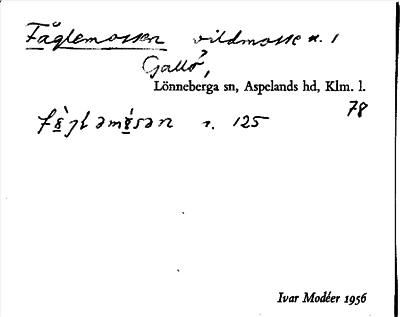 Fåglemossen vildmosse n. 1
Gallö,
Lönneberga sn, Aspelands hd, Klm. l.
78
s. 125
Ivar Modéer 1956